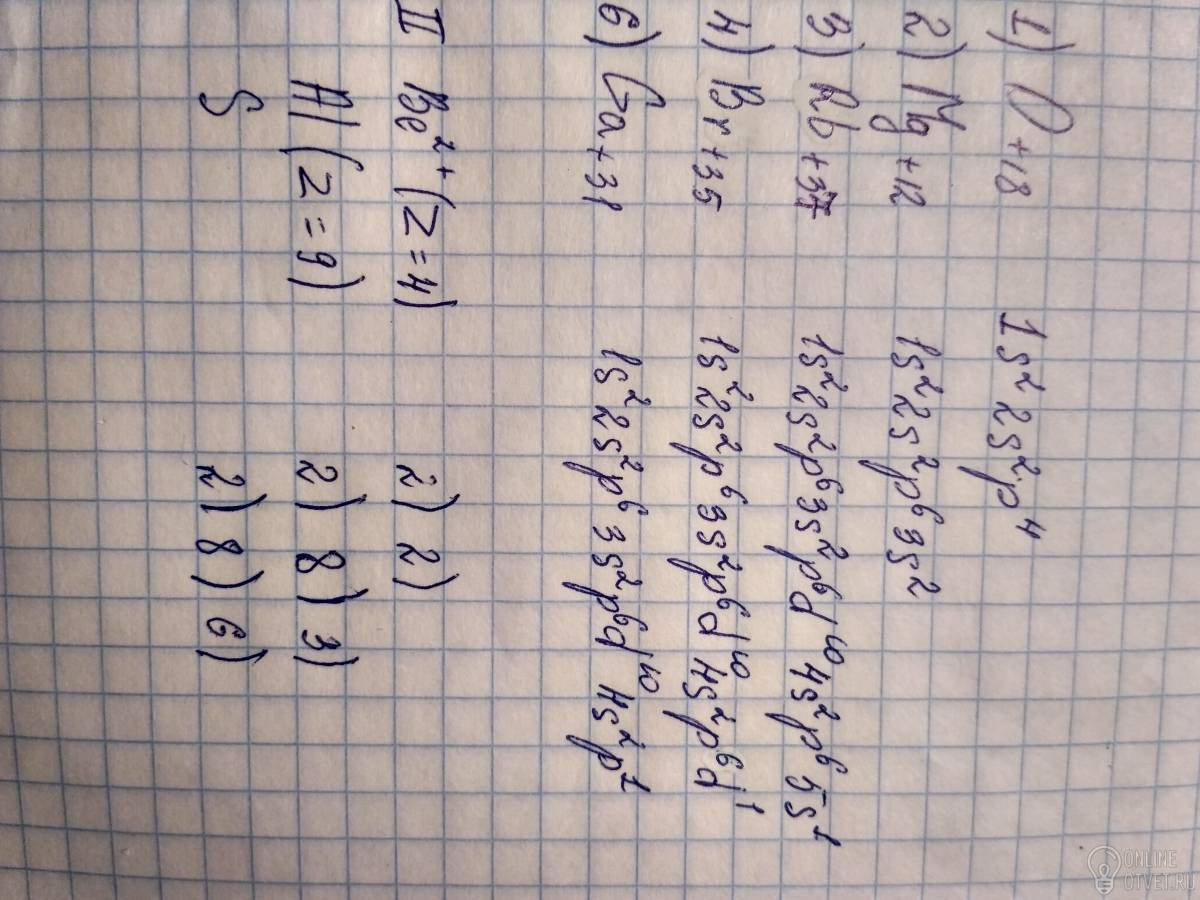 1) O +18 1s² 2s²p⁴
2) Mg +12 1s² 2s²p⁶ 3s²
3) Rb +37 1s² 2s²p⁶ 3s²p⁶d¹⁰ 4s²p⁶ 5s¹
4) Br +35 1s² 2s²p⁶ 3s²p⁶d¹⁰ 4s²p⁶d¹
6) Ga +31 1s² 2s²p⁶ 3s²p⁶d¹⁰ 4s²p¹
II Be²⁺ (Z=4) 2) 2)
Al (Z=9) 2) 8) 3)
S 2) 8) 6)
ONLINE
OTVET.RU